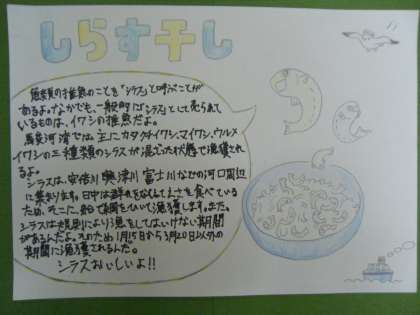 しらす干し
魚類の稚魚のことを「シラス」と呼ぶことが
あるよ。なかでも、一般的に「シラス」として売られて
いるものは、イワシの稚魚だよ。
駿河湾では、主にカタクチイワシ、マイワシ、ウルメ
イワシの三種類のシラスが混ざった状態で漁獲され
るよ。
シラスは、安倍川、興津川、富士川などの河口周辺
に集まります。日中は群れをなしてえさを食べている
ため、そこに船で網をひいて漁獲します。また、
シラスは規則により漁をしてはいけない期間
があるんだよ。そのため1月15日から3月20日以外の
期間に漁獲されるんだ。
シラスおいしいよ!!